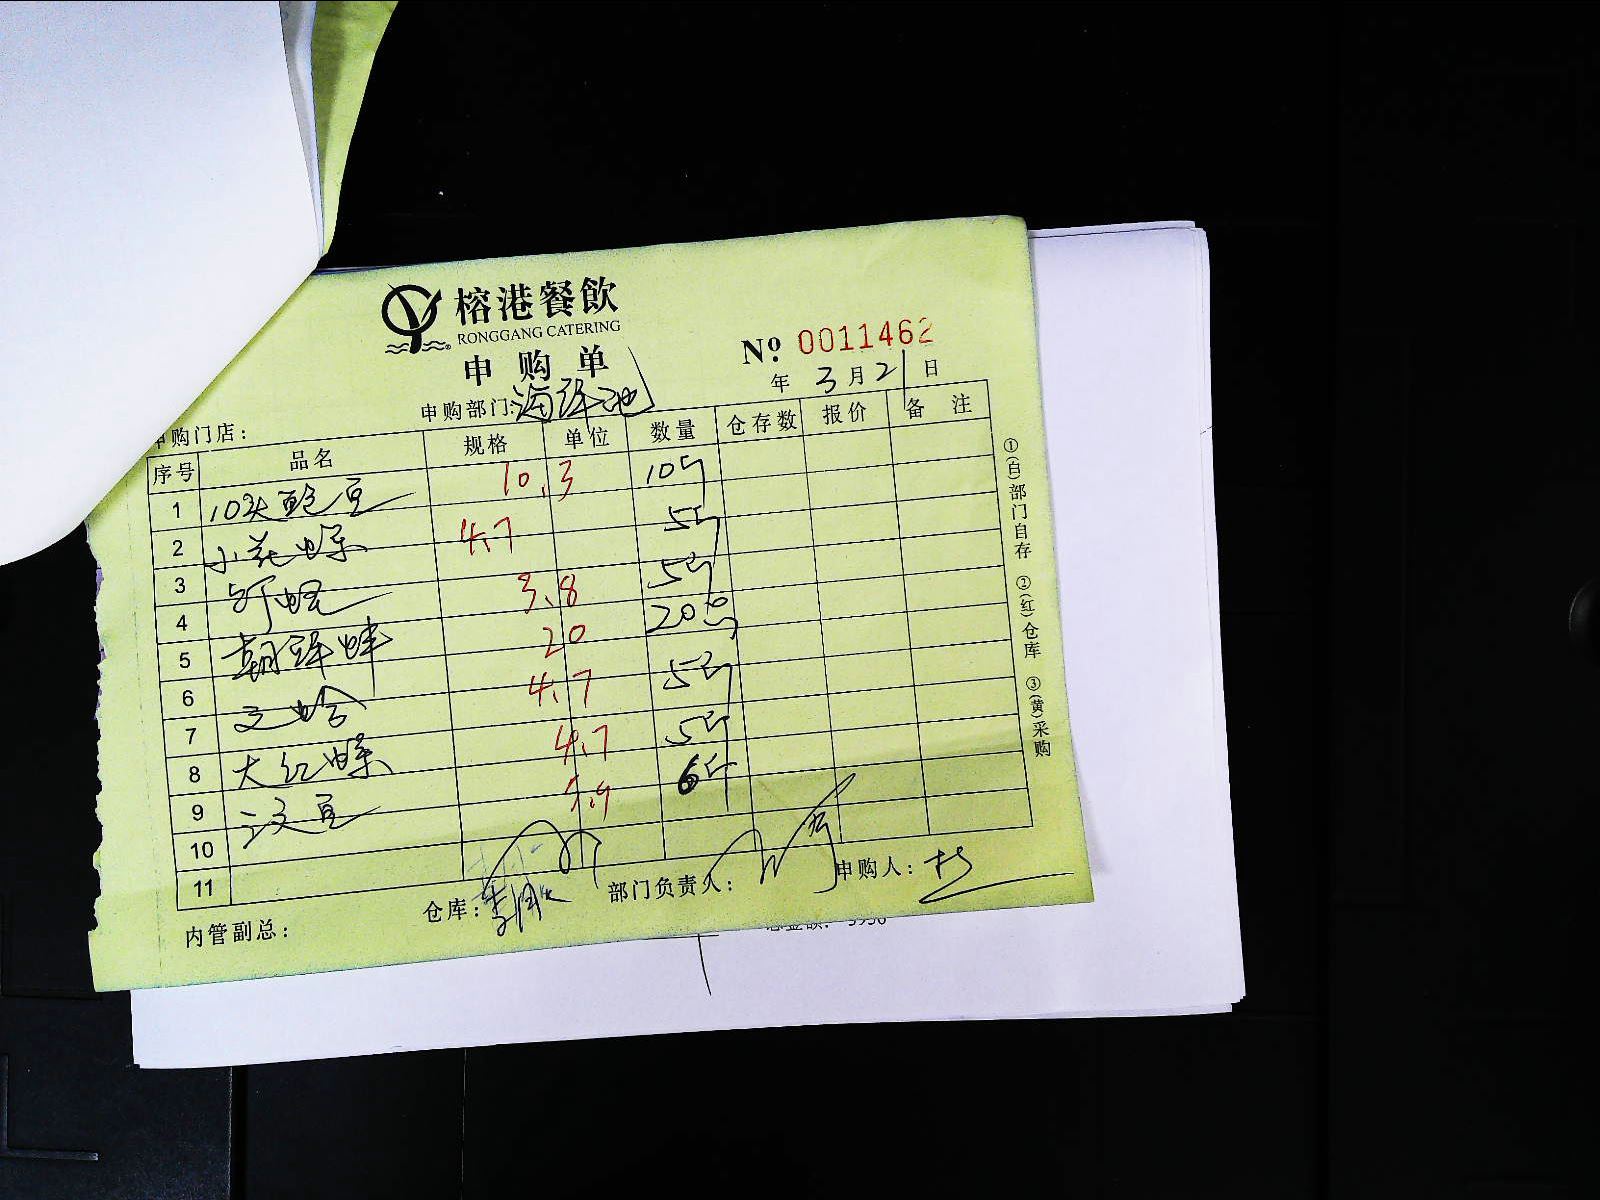 榕港餐飲
RONGGANG CATERING
申购单
No. 0011462
年 3 月 21 日
申购门店: 申购部门: 海鲜池
序号 品名 规格 单位 数量 仓存数 报价 备注
1 10头鲍 10.3 10斤
2 小花螺 4.7 5斤
3 3.8 5斤
4 20 20
5 朝鲜蚌 4.7 5斤
6 文蛤 4.7 5斤
7 6斤
8 大红螺
9
10
11
内管副总: 仓库: 部门负责人: 申购人:
①(白)部门自存 ②(红)仓库 ③(黄)采购